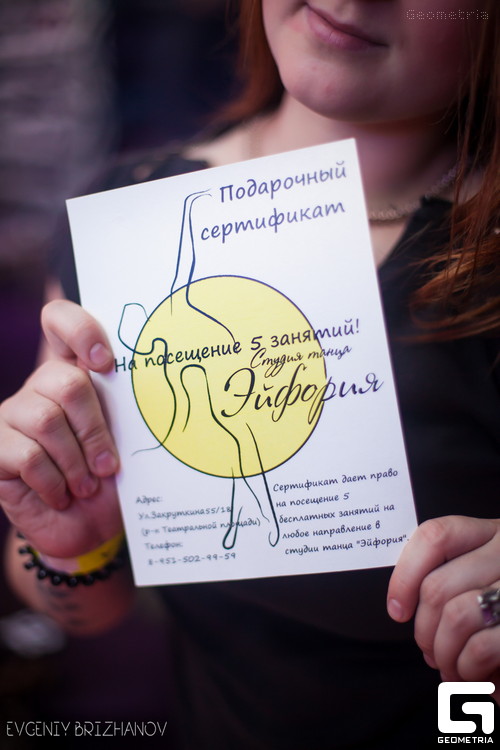 Geometria
Подарочный
сертификат
На посещение 5 занятий!
Студия танца
Эйфория
Адрес:
Ул.Закруткина55/18
(р-н Театральной площади)
Телефон:
8-951-502-99-59
Сертификат дает право
на посещение 5
бесплатных занятий на
любое направление в
студии танца "Эйфория".
EVGENIY BRIZHANOV
GEOMETRIA